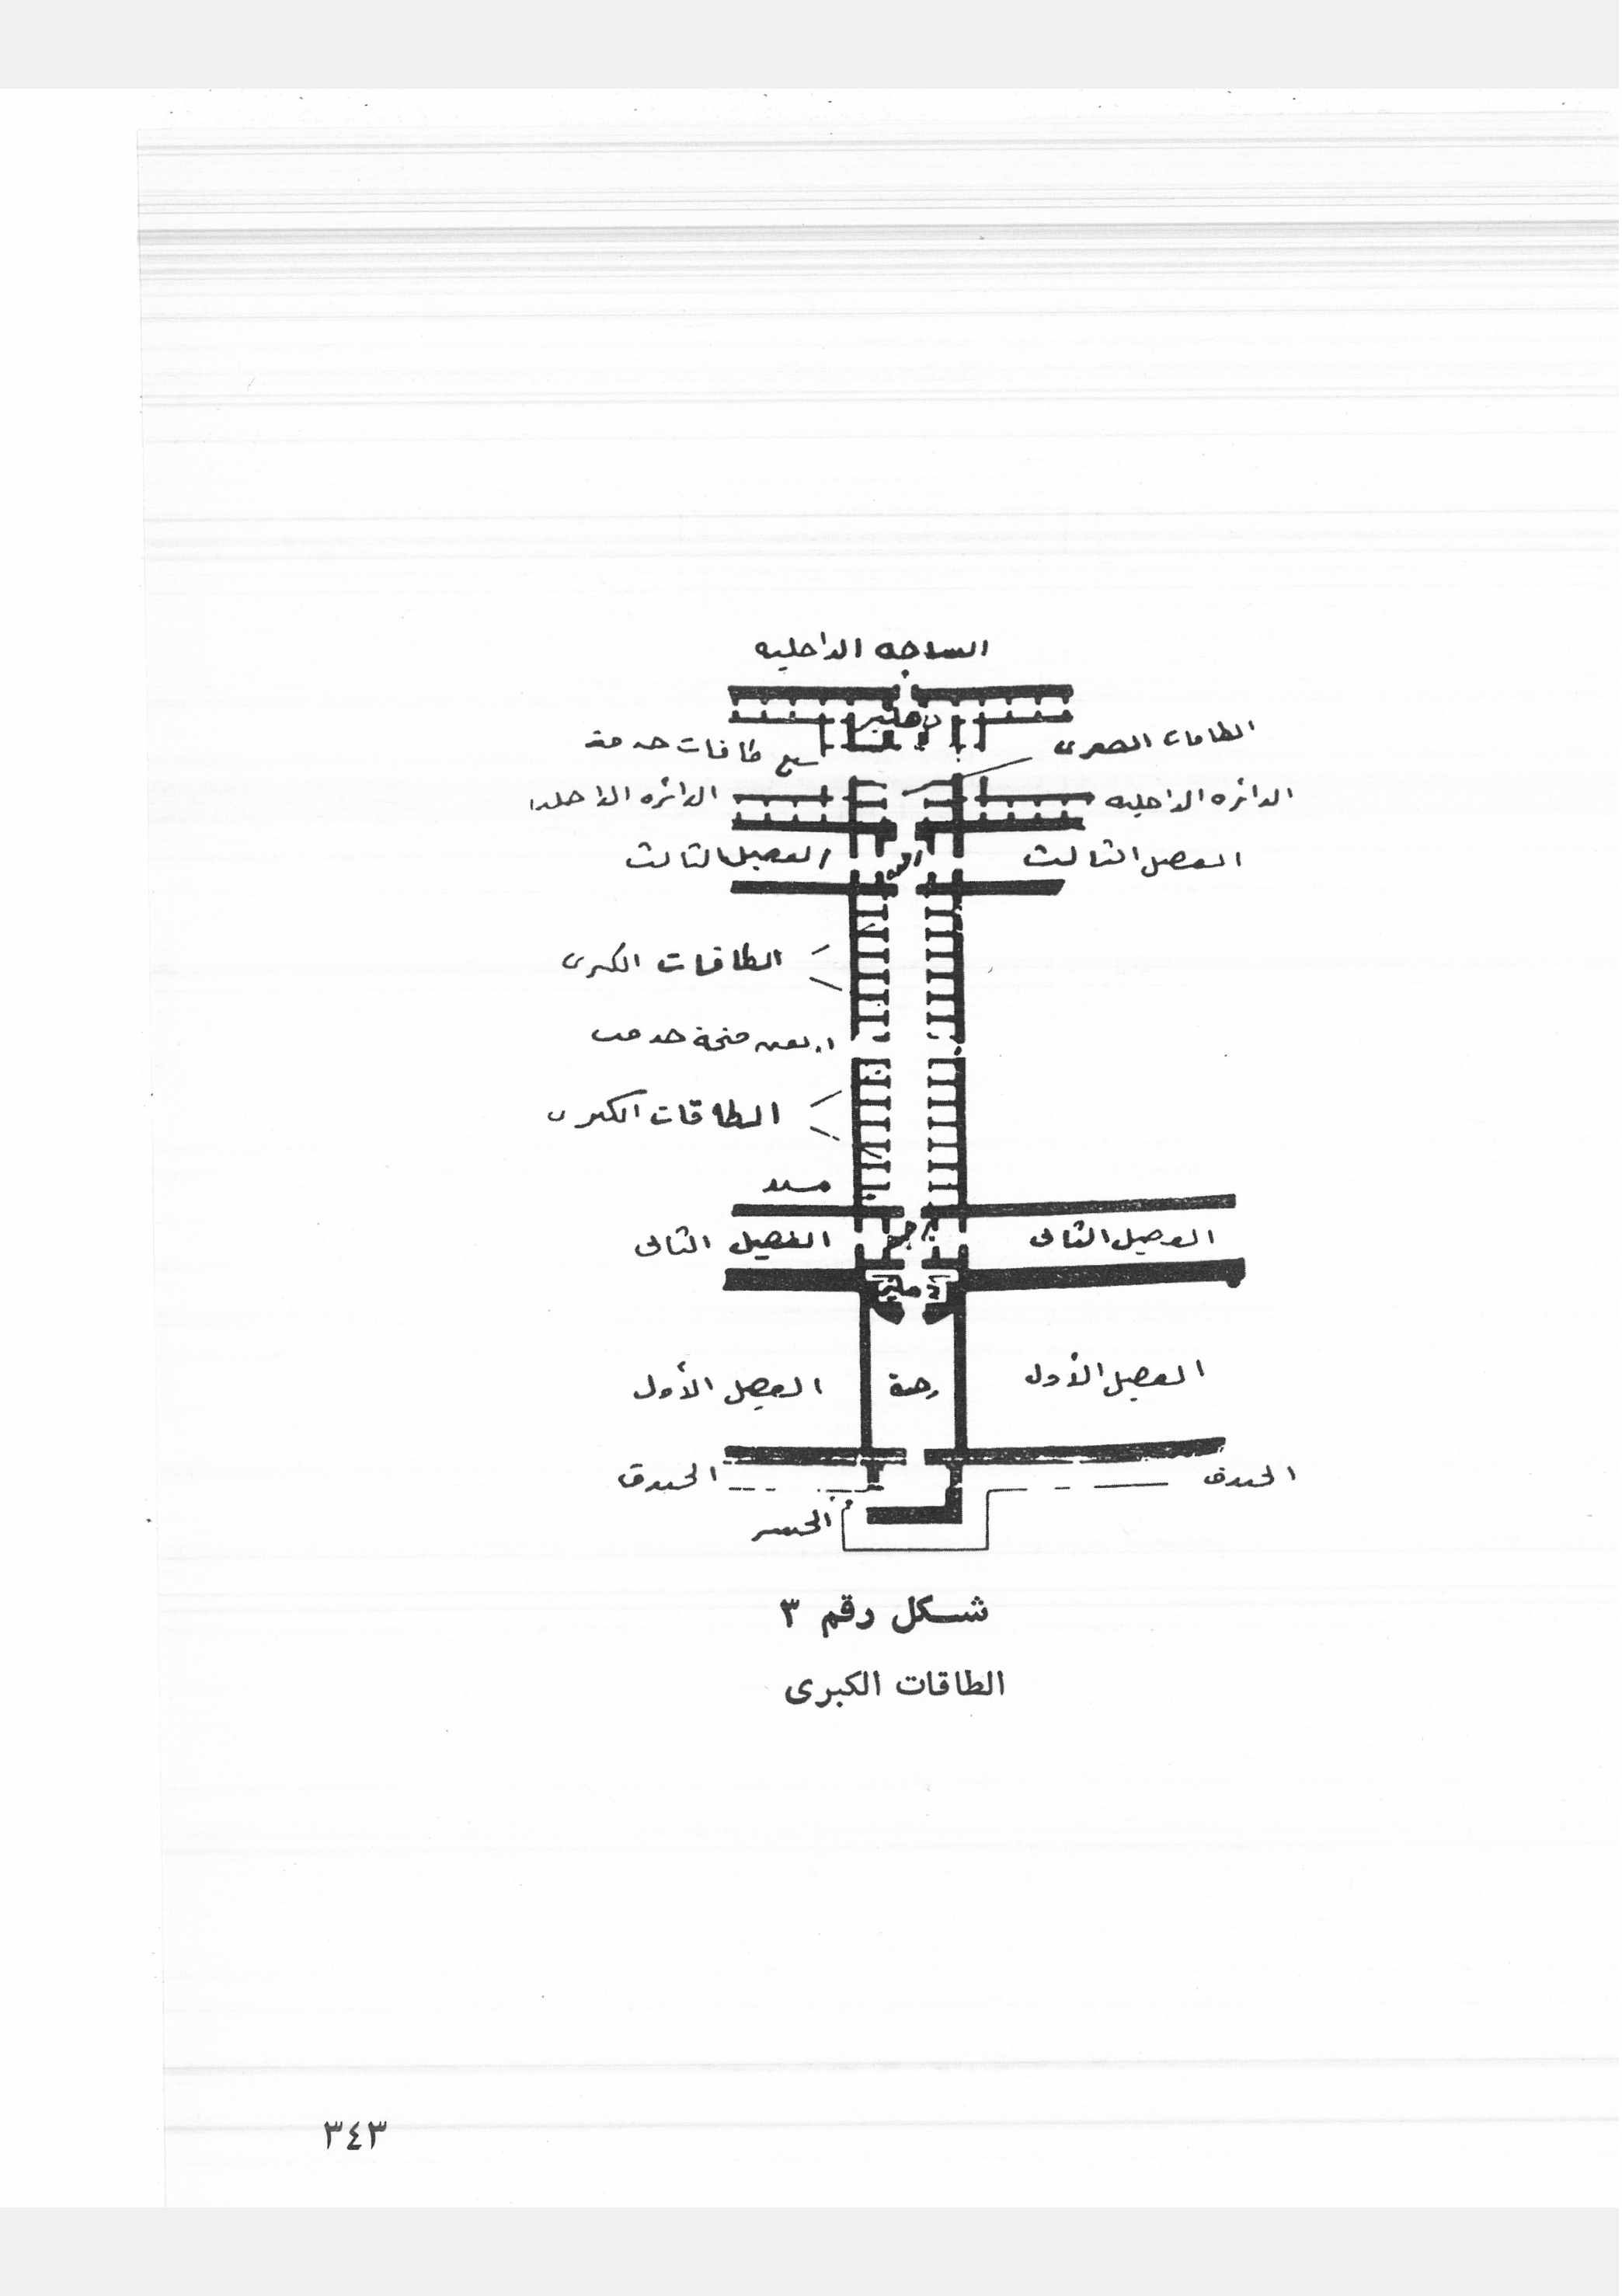 الساحه الداخليه
دهليز
الطاقات الصغرى
طاقات خدمة
الدائره الداخليه
الدائره الداخليه
الفصيل الثالث
الفصيل الثالث
الطاقات الكبرى
فتحة
الطاقات الكبرى
الفصيل الثانى
الفصيل الثانى
دهليز
الفصيل الأول
رحبة
الفصيل الأول
الخندق
الخندق
الجسر
شكل رقم ٣
الطاقات الكبرى
٣٤٣